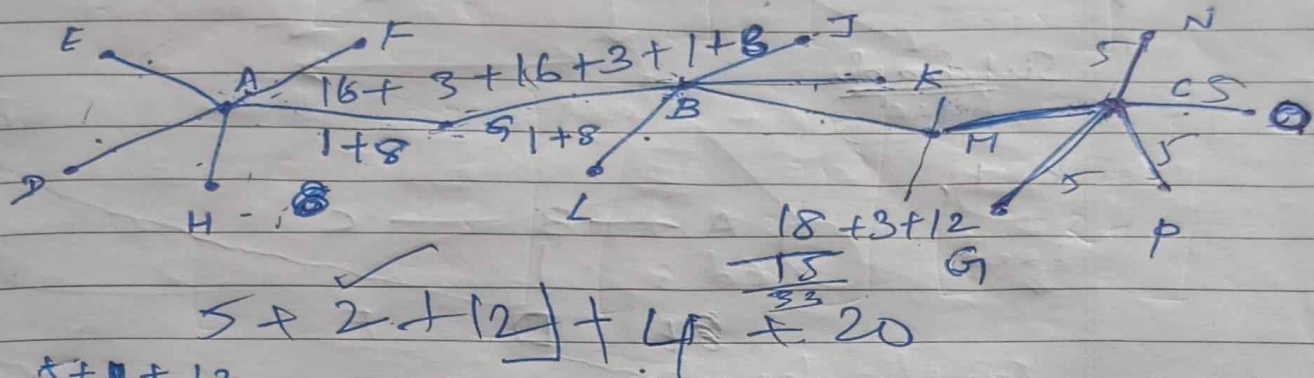 E F J N
A 16 + 3 + 16 + 3 + 1 + 8 K 5 C 5 Q
1+8 G 1+8 B M 5
D H - 8 L 5 P
18 +3+12
15 G
33
5 + 2 + 12] + 4 + 20